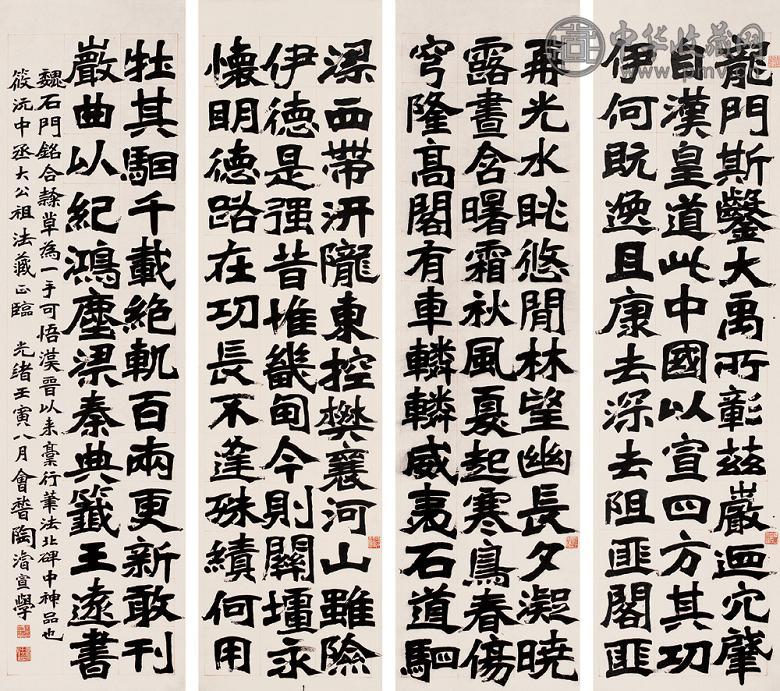 龍門斯鑿大禹所彰茲巖迴穴肇
自漢皇道此中國以宣四方其功
伊何既逸且康去深去阻匪閣匪
再光水眺悠閒林望幽長夕凝曉
露晝含曙霜秋風夏起寒鳥春傷
穹隆高閣有車轔轔威夷石道駟
梁西帶汧隴東控樊襄河山雖險
伊德是强昔惟畿甸今則關壃永
懷明德路在功長不逢殊績何用
牡其駰千載絶軌百兩更新敢刊
巖曲以紀鴻塵梁秦典籤王遠書
魏石門銘合隸草為一手可悟漢晉以来藁行筆法北碑中神品也
筱沅中丞大公祖法藏正臨 光緒壬寅八月會稽陶濬宣學
中华收藏网